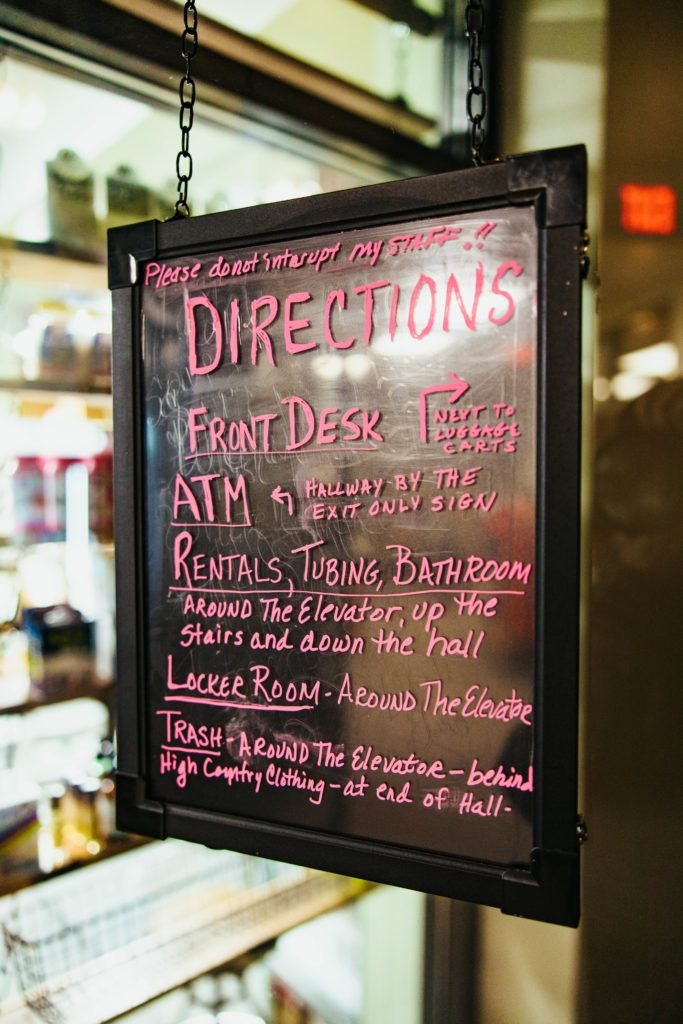 Please do not intarupt my STAFF.!!
DIRECTIONS
FRONT DESK
NEXT TO
LUGGAGE
CARTS
ATM
HALLWAY BY THE
EXIT ONLY SIGN
RENTALS, TUBING, BATHROOM
AROUND The Elevator, up the
Stairs and down the hall
LOCKER ROOM - AROUND The Elevator
TRASH - AROUND The Elevator - behind
High Country Clothing - at end of Hall -